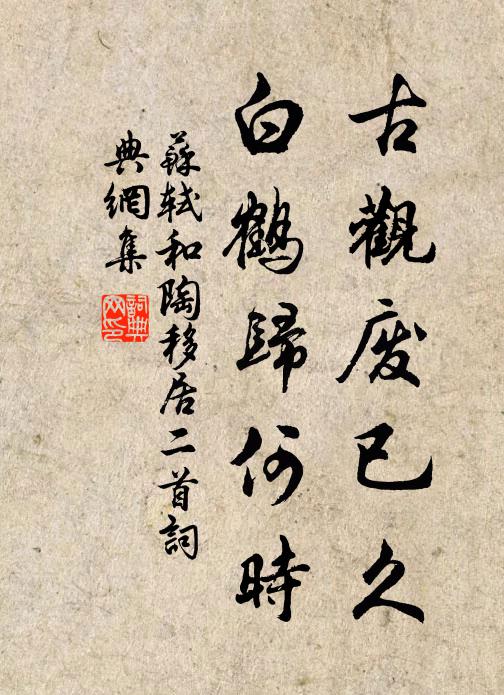 古觀废已久
白鶴歸何時
蘇軾和陶移居二首詞
典網集
詞典網印